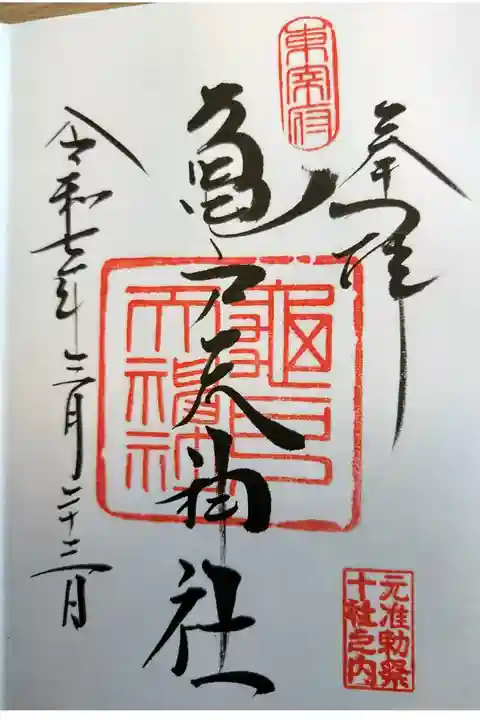 奉拝
東宰府
亀戸天神社
亀戸天満天神社
元准勅祭
十社之内
令和七年三月二十三日